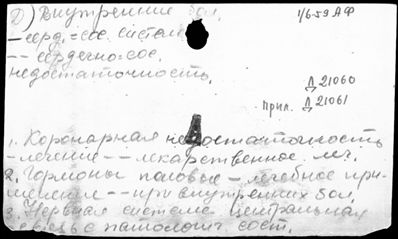 Д) Внутренние бол. 1/6-59 АФ
– серд.=сос. систем
– – сердечно=сос.
недостаточность.
Д 21060
прил. Д 21061
1. Коронарная недостаточность
– лечение – – лекарственное леч.
2. Гормоны половые – лечебное при-
менение – – при внутренних бол.
3. Нервная система центральная
связь с патолог. сост.